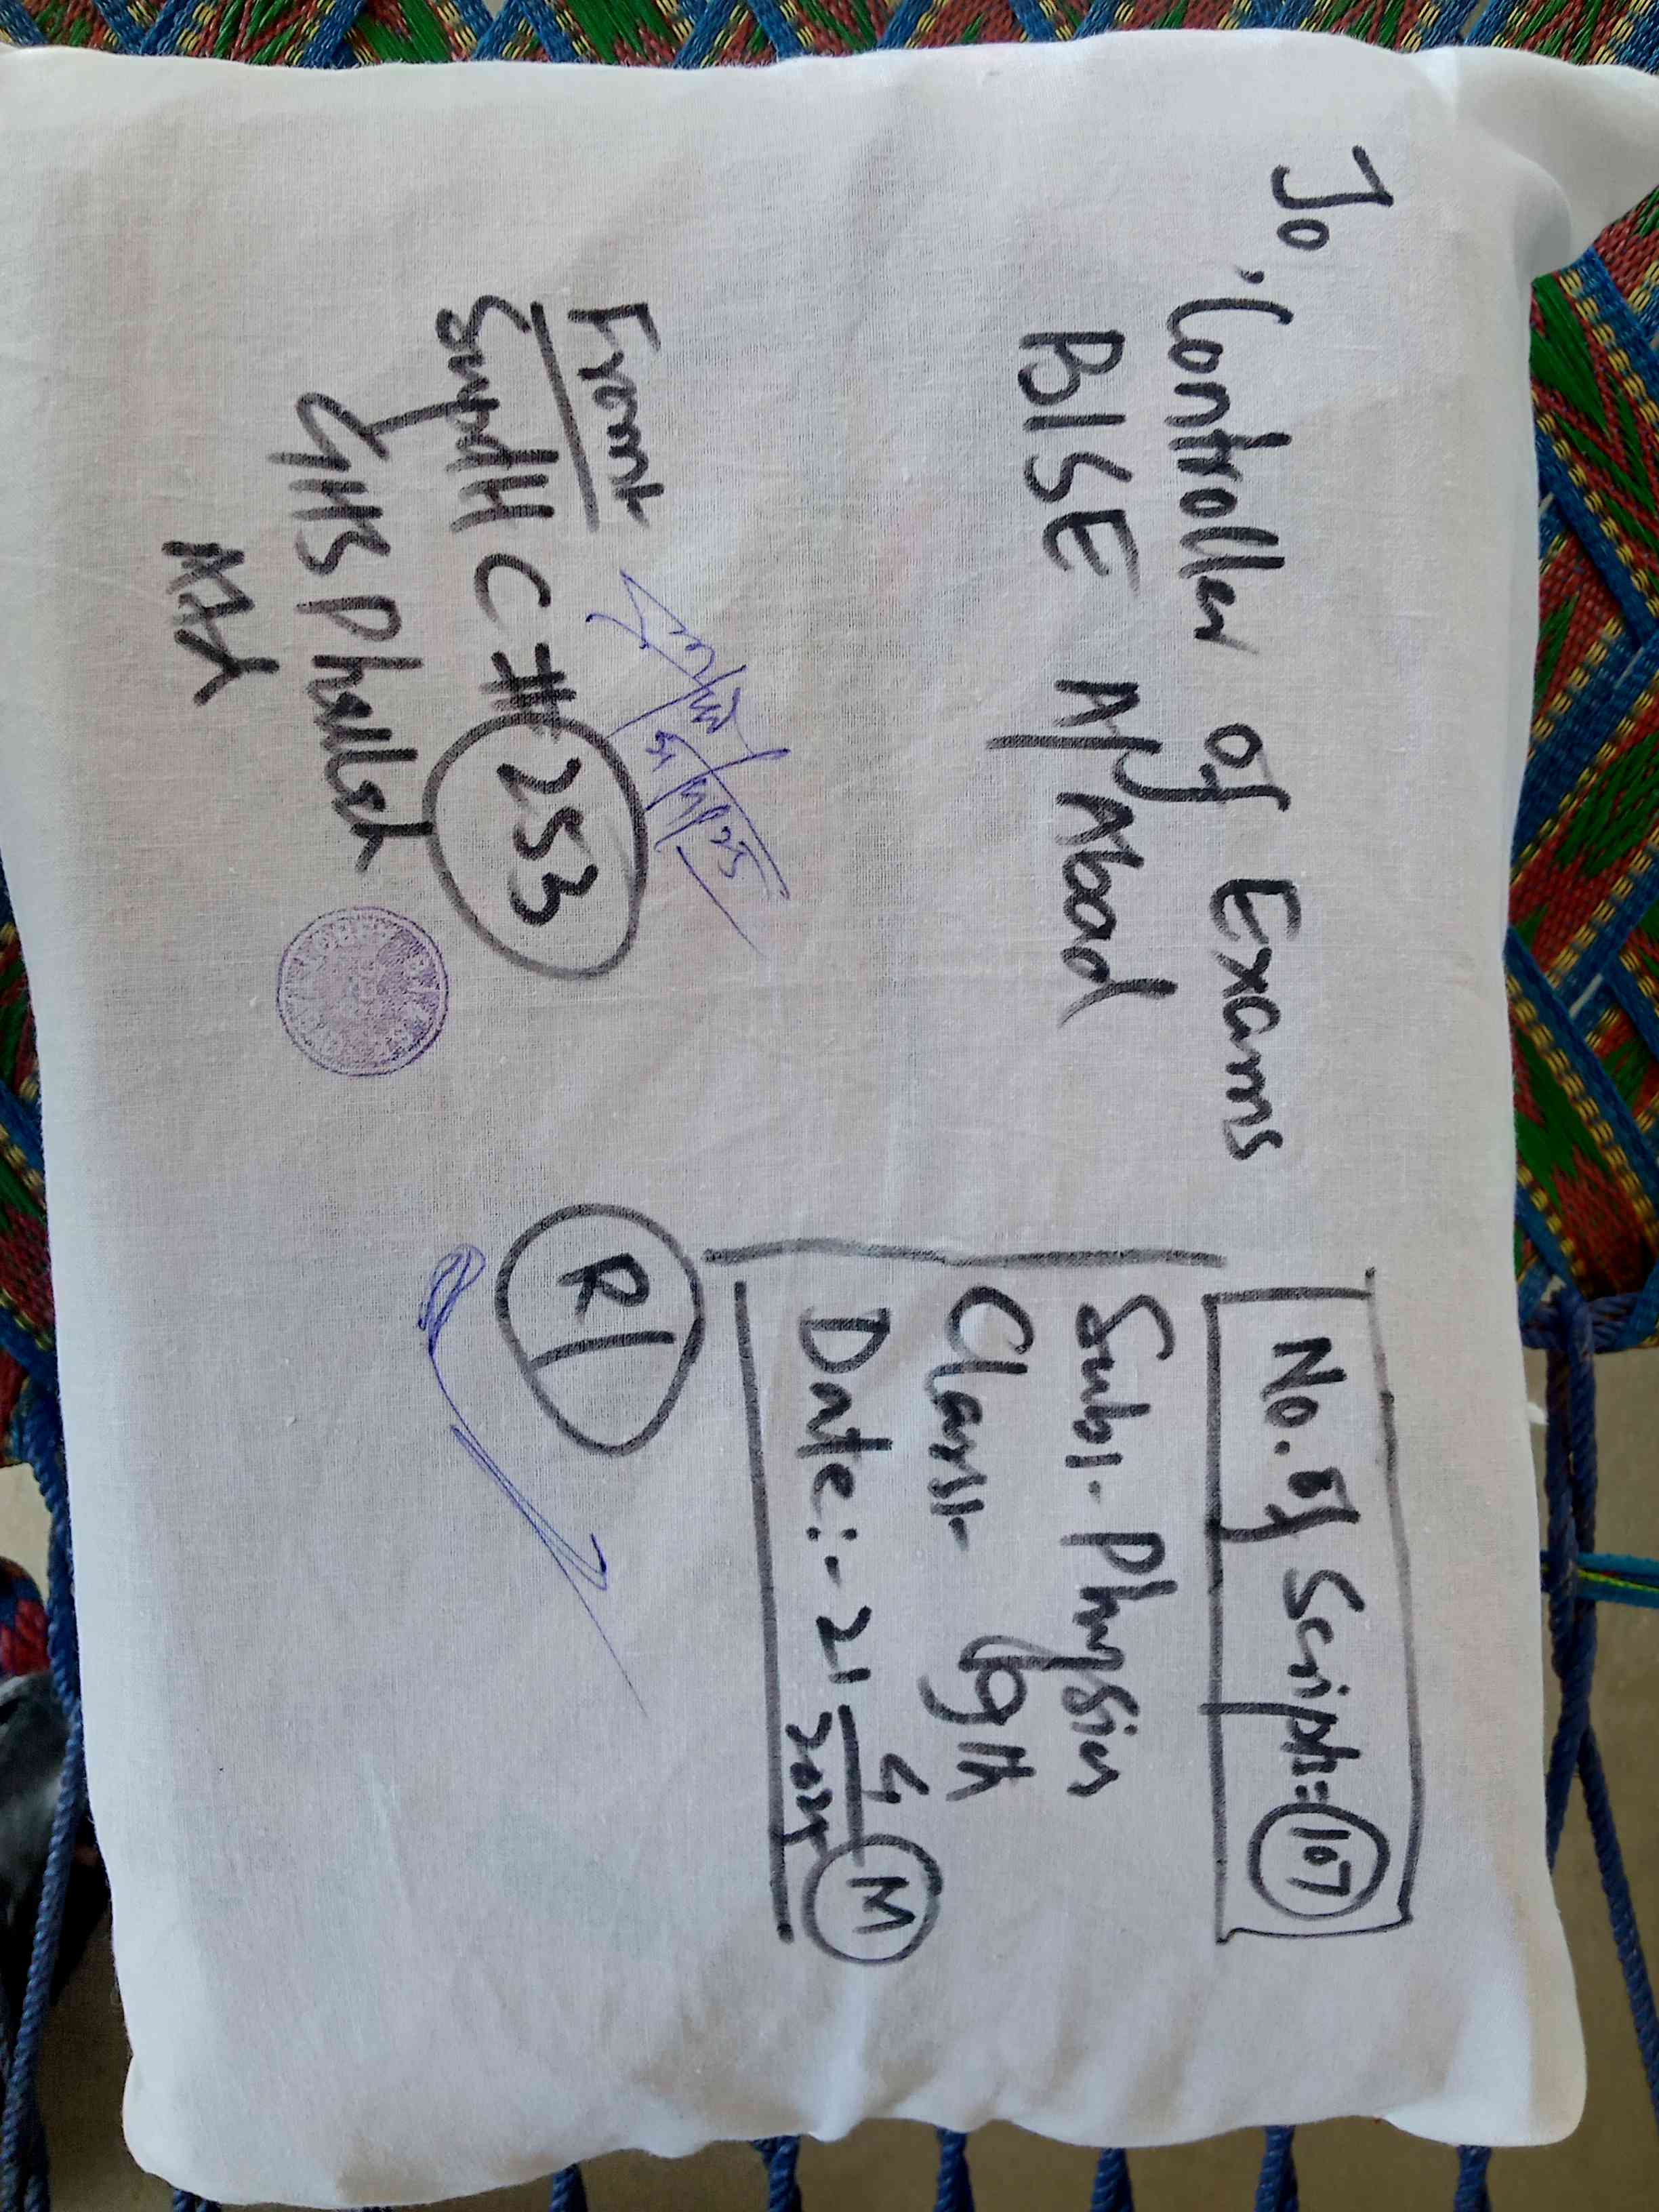 To, Controller of Exams
BISE A/Abad
From:-
Supdtt C # 253
GHS Phallah
No. of Script:= 107
Sub:- Physics
Class:- 9th
Date:- 21 4 2025 M
R1